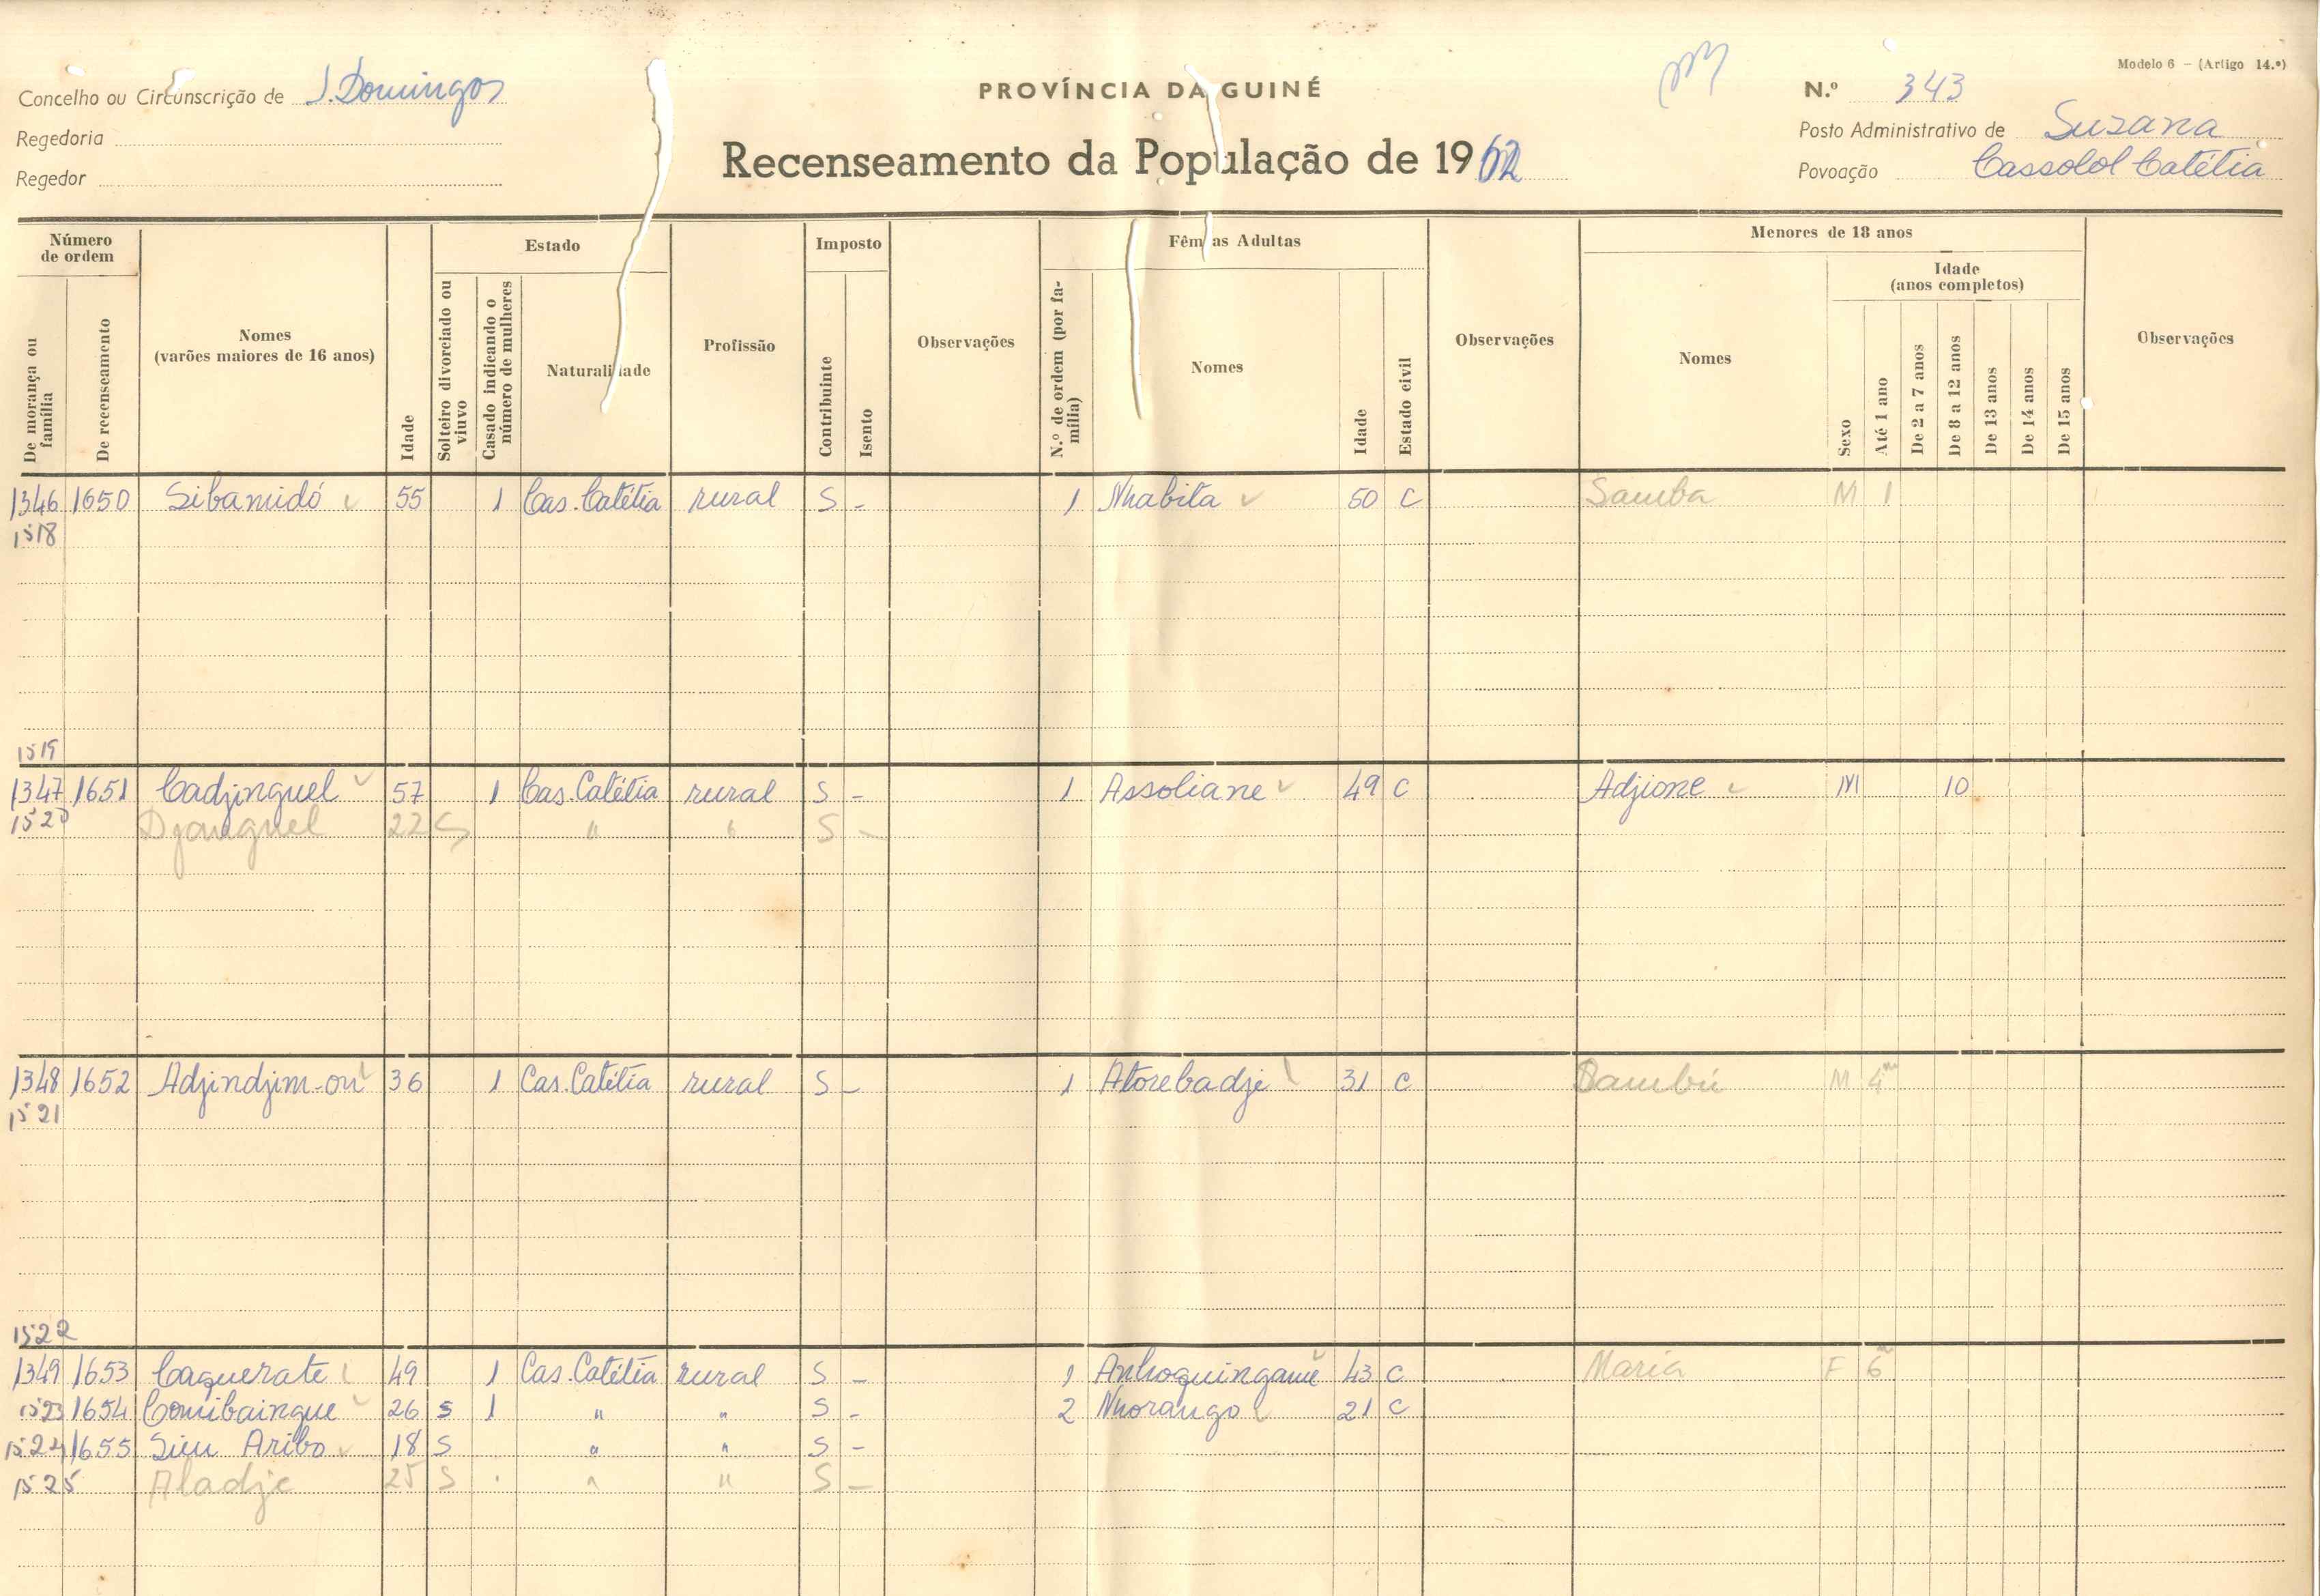 Modelo 6 - (Artigo 14.º)
Concelho ou Circunscrição de S. Domingos
PROVÍNCIA DA GUINÉ
N.º 343
Regedoria
Recenseamento da População de 1962
Posto Administrativo de Suzana
Regedor
Povoação Cassolol Catétia
Número de ordem
Estado
Imposto
Fêmeas Adultas
Menores de 18 anos
De morança ou família
De recenseamento
Nomes (varões maiores de 16 anos)
Idade
Solteiro divorciado ou viuvo
Casado indicando o número de mulheres
Naturalidade
Profissão
Contribuinte
Isento
Observações
N.º de ordem (por família)
Nomes
Idade
Estado civil
Observações
Nomes
Sexo
Idade (anos completos)
Até 1 ano
De 2 a 7 anos
De 8 a 12 anos
De 13 anos
De 14 anos
De 15 anos
Observações
1346 1650 Sibamidó 55 1 Cas. Catétia rural S - 1 Nhabita 50 C Samba M 1
1518
1519
1347 1651 Cadjinguel 57 1 Cas. Catétia rural S - 1 Assoliane 49 C Adjione M 10
1520 Djanguel 22 S " " S -
1348 1652 Adjindjim-on 36 1 Cas. Catétia rural S - 1 Atorebadje 31 C Bambú M 4m
1521
1522
1349 1653 Caquerate 49 1 Cas. Catétia rural S - 1 43 C Maria F 6m
1523 1654 Combaingue 26 S 1 " " S - 2 Nhorango 21 C
1524 1655 Siu Aribo 18 S " " S -
1525 Aladje 25 S " " S -